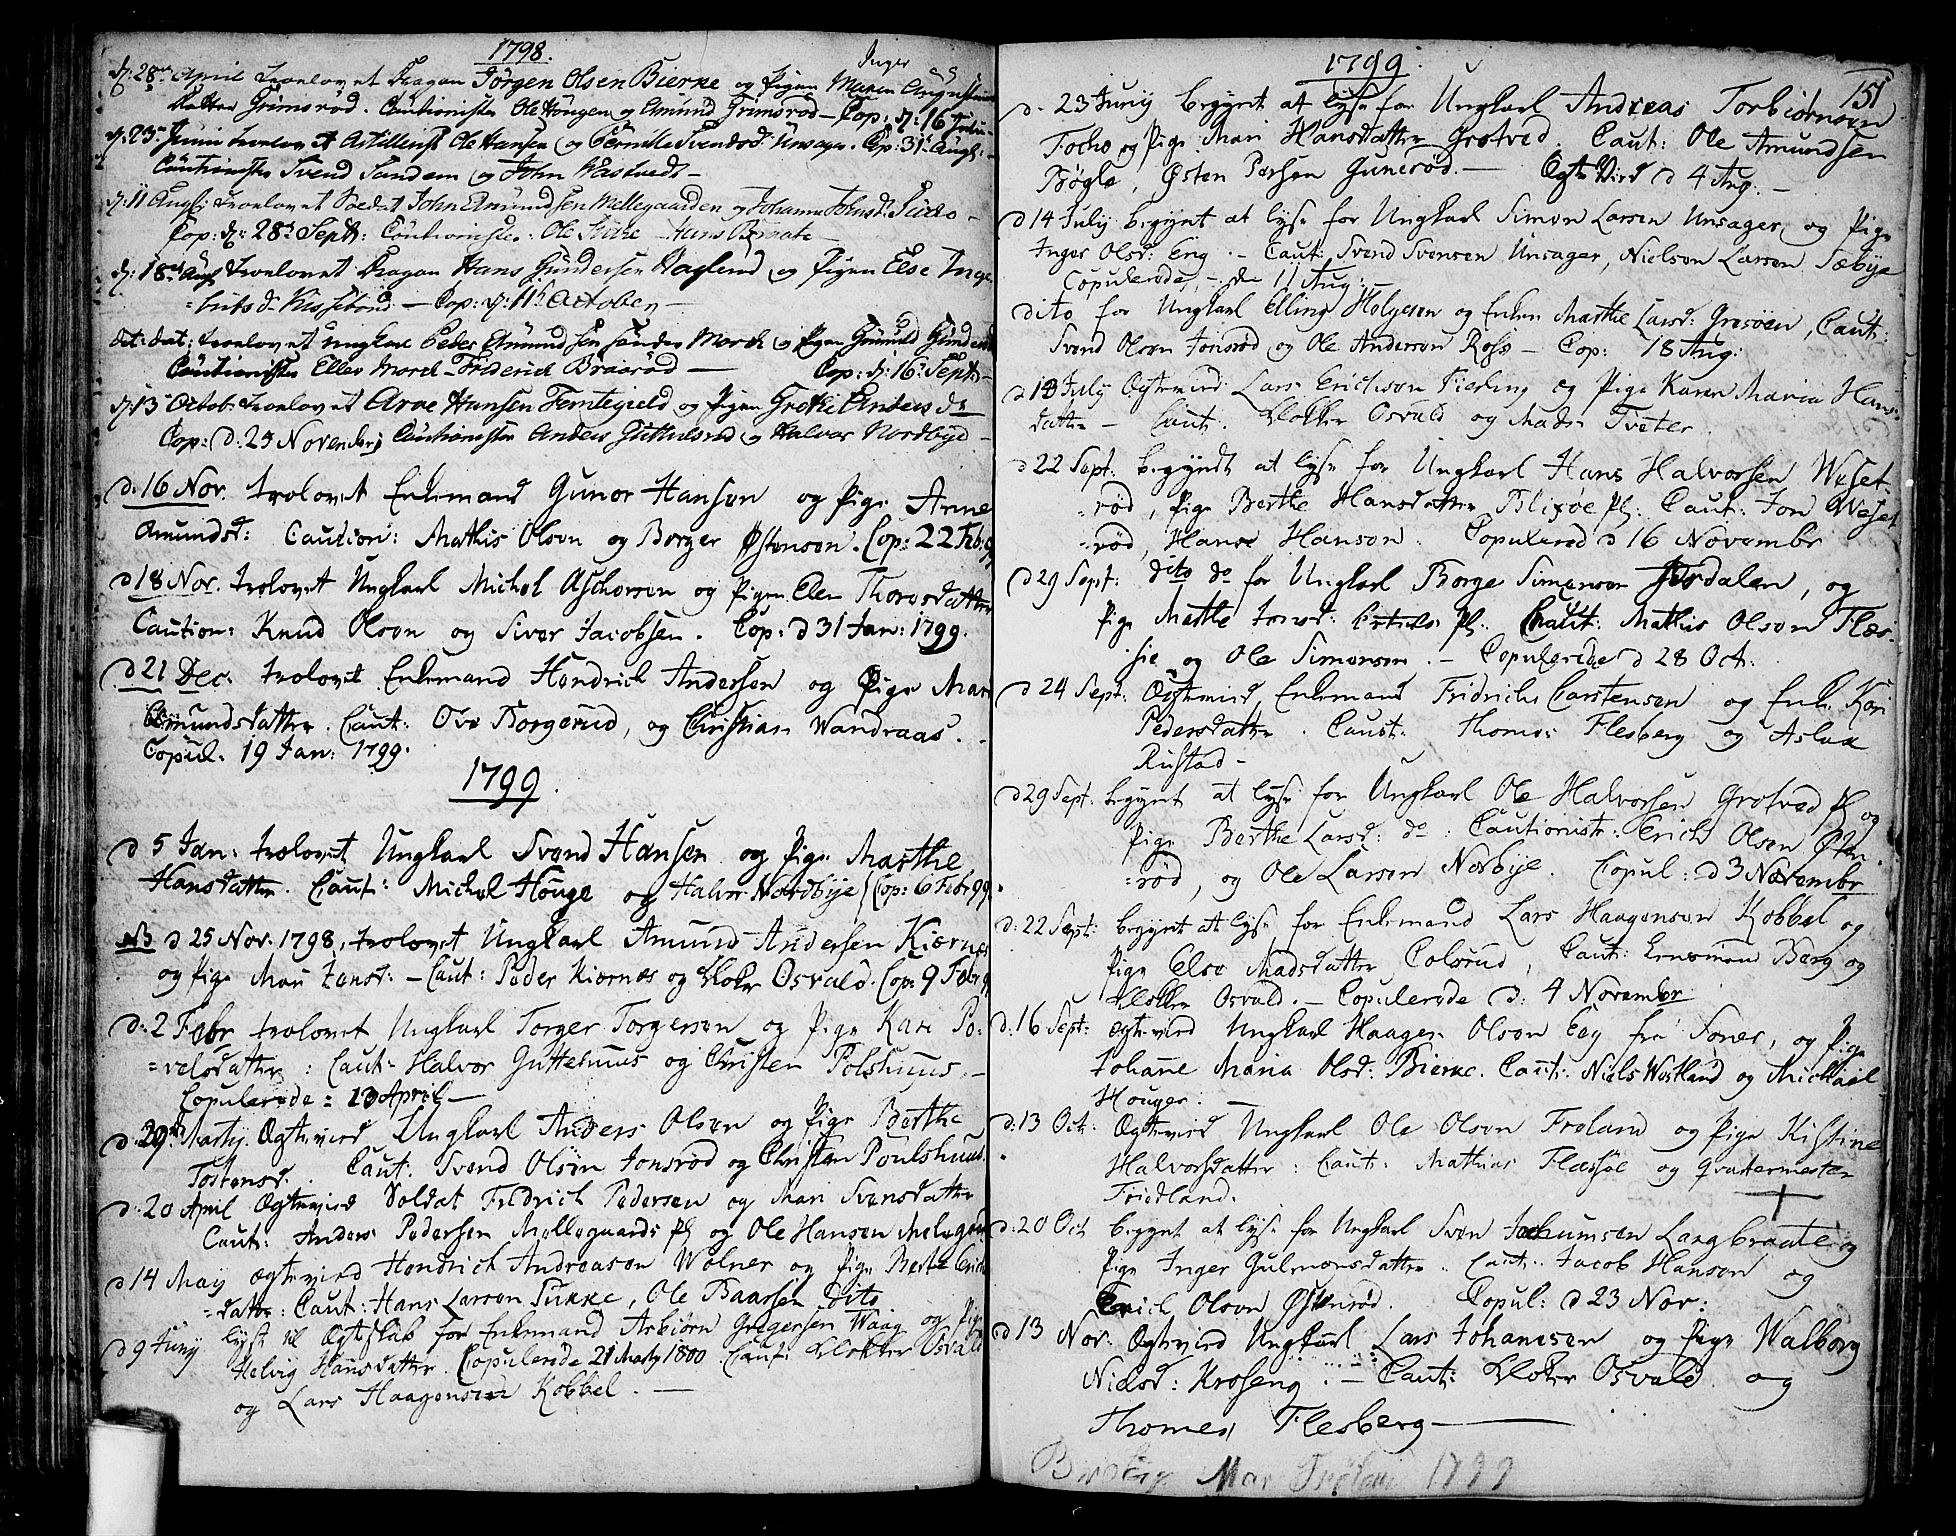 1798.
d: 28de April trolovet Dragon Jörgen Olsen Bierke og Pigen Inger Maria Augustinus
Datter Grimsröd. Cautionister Ole Hougen og Amund Grimsröd — Cop: d: 16 Julii
d: 23 Junii trolovet Artillerist Ole Hansen og Pernille Svendsd: Unsager. Cop: 31 Aug:
Cautionister Svend Sandem og John Wastvedt —
d: 11 Aug: trolovet Soldat John Amundsen Mellegaarden og Johanne Johnsd:
Cop: d: 28de Sept: Cautionister Ole Hans
d: 18de Aug: trolovet Dragon Hans Gundersen Haglund og Pigen Else Inge-
=brits d: Kissebond — Cop: d: 11te October —
dat: dat: trolovet Ungkarl Peder Amundsen Sander Morch og Pigen Gunild Gunders
Cautionister Eller Morch Friderich Braaröd — Cop: d: 16 Septr
d: 13 Octob: trolovet Arne Hansen Femtegield og Pigen Grethe Anders dr
Cop: d: 24 November Cautionister Anders Guttulsrud og Halvor Nordbye —
d: 16 Nov. trolovet Enkemand Gunor Hansen og Pige Anne
Amundsd: Caution: Mathis Olsen og Borger Østensen. Cop: 22 Feb: 99
d 18 Nov. trolovet Ungkarl Michel Aschersen og Pigen Elen Thoresdatter
Caution: Knud Olsen og Siver Jacobsen. Cop: d 31 Jan: 1799.
d 21 Dec: trolovet Enkemand Hendrich Andersen og Pige Mari
Amundsdatter. Caut: Ove Borgerud, og Christian Wandraas.
Copul: 19 Jan: 1799.
1799.
d 5 Jan: trolovet Ungkarl Svend Hansen og Pige Marthe
Hansdatter. Caut: Michel Houge og Halvor Nordbye / Cop: 6 Febr 99.
NB d 25 Nov. 1798, trolovet Ungkarl Amund Andersen Kiærnes
og Pige Mari Jensd: — Caut: Peder Kiærnes og Kloker Osvald. Cop: 9 Febr 99
d: 2 Febr trolovet Ungkarl Torger Torgersen og Pige Kari Po-
=velsdatter: Caut: Halvor Guttehuus og Christen Polshuus. —
Copulerede: 10 April —
d: 29de Martii Ægtevied Ungkarl Anders Olsen og Pige Berthe
Tostensd: Caut: Svend Olsen Jonsröd og Christen Poulshuus.
d: 20 April Ægtevied Soldat Fridrich Pedersen og Mari Svensdatter
Caut: Anders Pedersen Mollegaards Pl og Ole Hansen Mølegaard
d 14 May ægtevied Hendrich Andreasen Wolner og Pige Berthe Erichs
=datter: Caut: Hans Larsen Tukke, Ole Baarsen dito
d 9 Juny lyst til Ægteskab for Enkemand Asbiørn Gregersen Waag og Pige
Helvig Hansdatter. Copulerede 21 Marty 1800 Caut: Klokker Osvald
og Lars Haagensen Kobbel. —
1799.
151
d. 23 Juny begynt at lyse for Ungkarl Andreas Torbiørnsen
Focho og Pige Mari Hansdatter Grøtvad. Caut: Ole Amundsen
Bøgle, Østen Persen Gunerød. — Ægte Vied d 4 Aug. —
d 14 July begynt at lyse for Ungkarl Simon Larsen Unsager og Pige
Inger Olsd: Eng. — Caut: Svend Svensen Unsager, Nielsen Larsen Sæbye
Copulerede, — den 11 Aug:
dito for Ungkarl Elling Helgesen og Enken Marthe Larsd: Gresøen, Caut:
Svend Olsen Jonsrød og Ole Andersen Ross — Cop: 18 Aug:
d 18 July Ægtevied Lars Erichsen Fierling og Pige Karen Maria Hans-
datter — Caut: Klokker Osvald og Mads Tveter.
d 22 Sept: begyndt at lyse for Ungkarl Hans Halvorsen Weset-
=rød, Pige Berthe Hansdatter Blixøe Pl: Caut: Jon Weset-
=rød, Hans Hansen. Copulered d 16 Novembr
d 29 Sept: dito do for Ungkarl Borge Simensen Jusdalen, og
Pige Marthe Jonsd: Pl: Caut: Mathis Olsen Flæs-
sie og Ole Simensen. — Copulerede d 28 Oct:
d 24 Sept: Ægtevied Enkemand Fridrich Carstensen og Enke Kari
Pedersdatter. Caut: Thomas Flesberg og Aslak
Rustad —
d 29 Sept: begynt at lyse for Ungkarl Ole Halvorsen Grøtvad Pl og
Pige Berthe Larsd: do: Cautionister: Erich Olsen Østen-
=rød, og Ole Larsen Nosbye. Copul: d 3 Novembr
d: 22 Sept: begynt at lyse for Enkemand Lars Haagensen Kobbel og
Pige Else Madsdatter Colsrud, Caut: Ernsman Berg og
Klokker Osvald. — Copulerede d: 4 Novembr
d: 16 Sept: ægtevied Ungkarl Haagen Olsen Eeg fra Soner, og Pige
Johanne Maria Olsd: Bierke. Caut: Niels Westland og Michael
Houger. —
d: 13 Oct: Ægtevied Ungkarl Ole Olsen Froland og Pige Kistine
Halvorsdatter: Caut: Mathias Flæssøe og Qvatermester
Friedland.
d: 20 Oct begynt at lyse for Ungkarl Sven Jochumsen Langbraate og
Pige Inger Gulmonsdatter. Caut: Jacob Hansen og
Erich Olsen Østenrød. Copul: d 23 Nov:
d 13 Nov: Ægtevied Ungkarl Lars Johannesen og Pige Walborg
Nielsd: Kroseng. — Caut: Kloker Osvald og
Thomes Flesberg —
Mar 1799